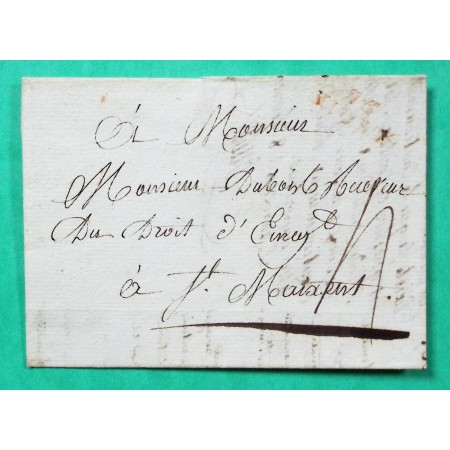 À Monsieur
Monsieur Dubois Receveur
Du Droit d'Enreg.t
à S.t Maixent